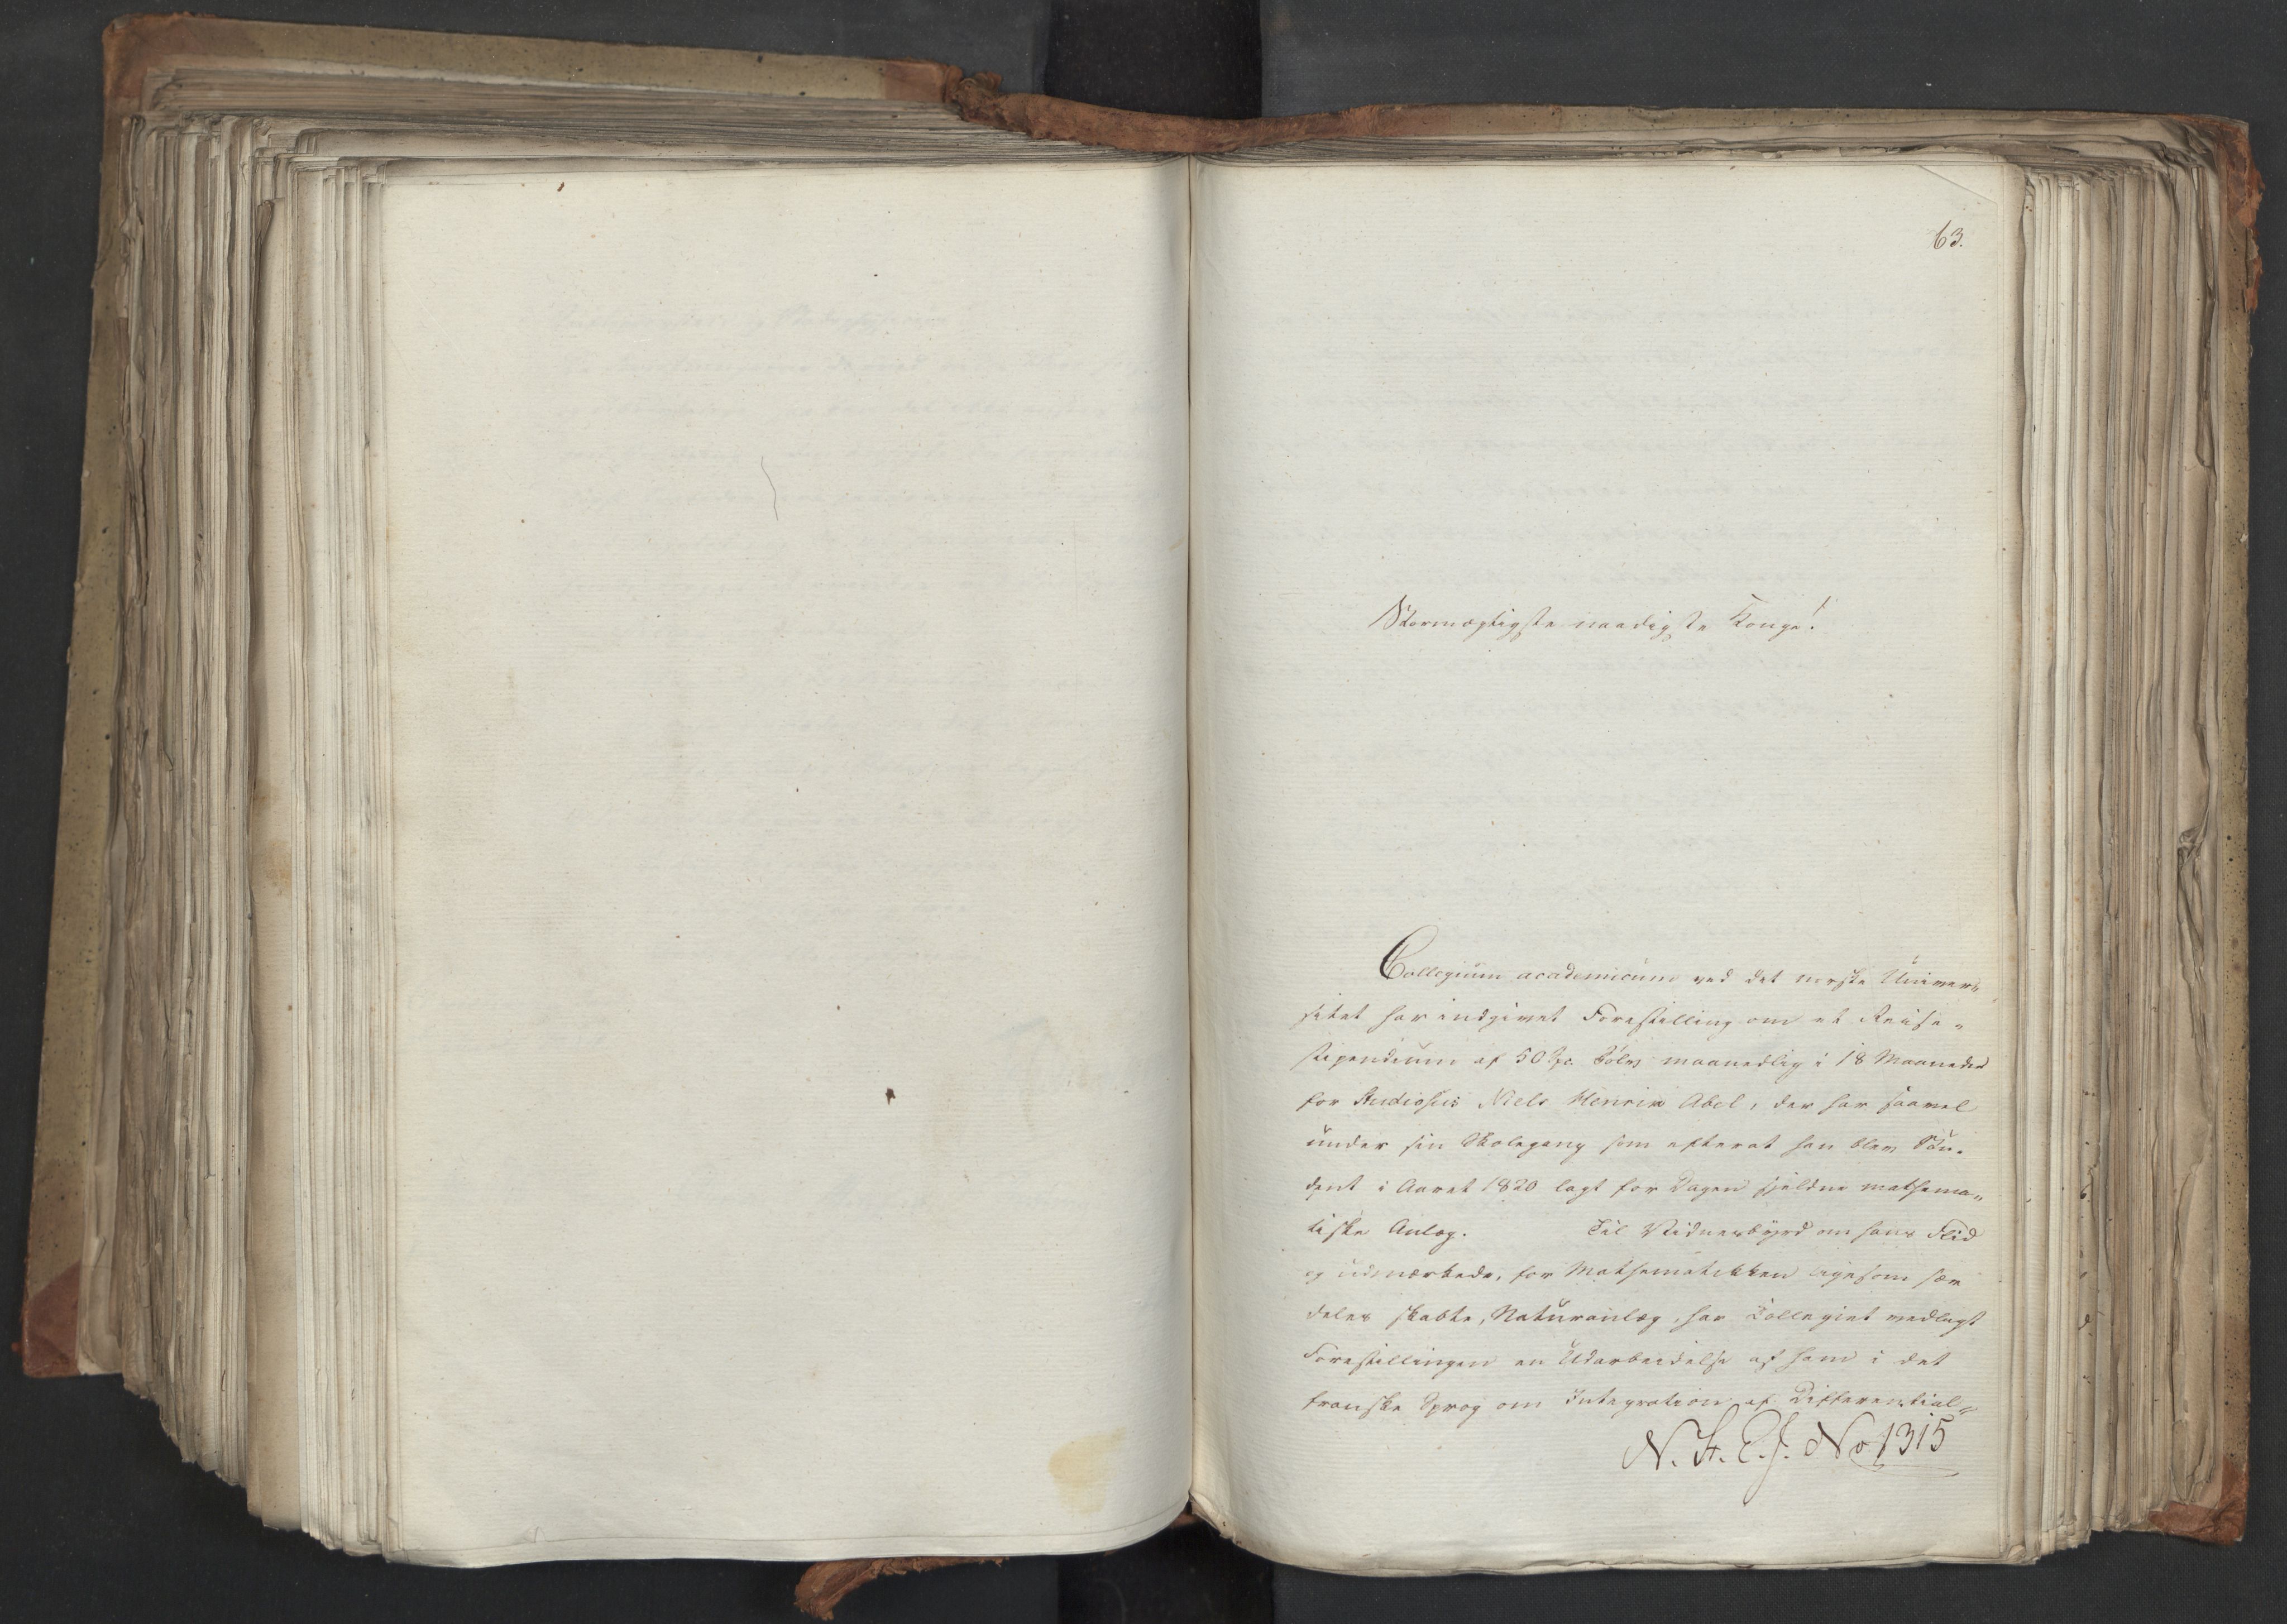 63.
Stormægtigste naadigste Konge!
Collegium academicum ved det norske Univer„
sitet har indgivet Forestilling om et Reise„
stipendium af 50 Spc. maanedlig i 18 Maaneder
for Studiosus Niels Henrik Abel, der har saavel
under sin Skolegang som efterat han blev Stu„
dent i Aaret 1820 lagt for Dagen sjeldne mathema„
tiske Anlæg. Til Vidnesbyrd om hans Flid
og udmærkede, for Mathematikken ligesom sær
deles skabte, Naturanlæg, har Collegiet vedlagt
Forestillingen en Udarbeidelse af ham i det
franske Sprog om Integration af Differential„
N. St. E. J. No 1315